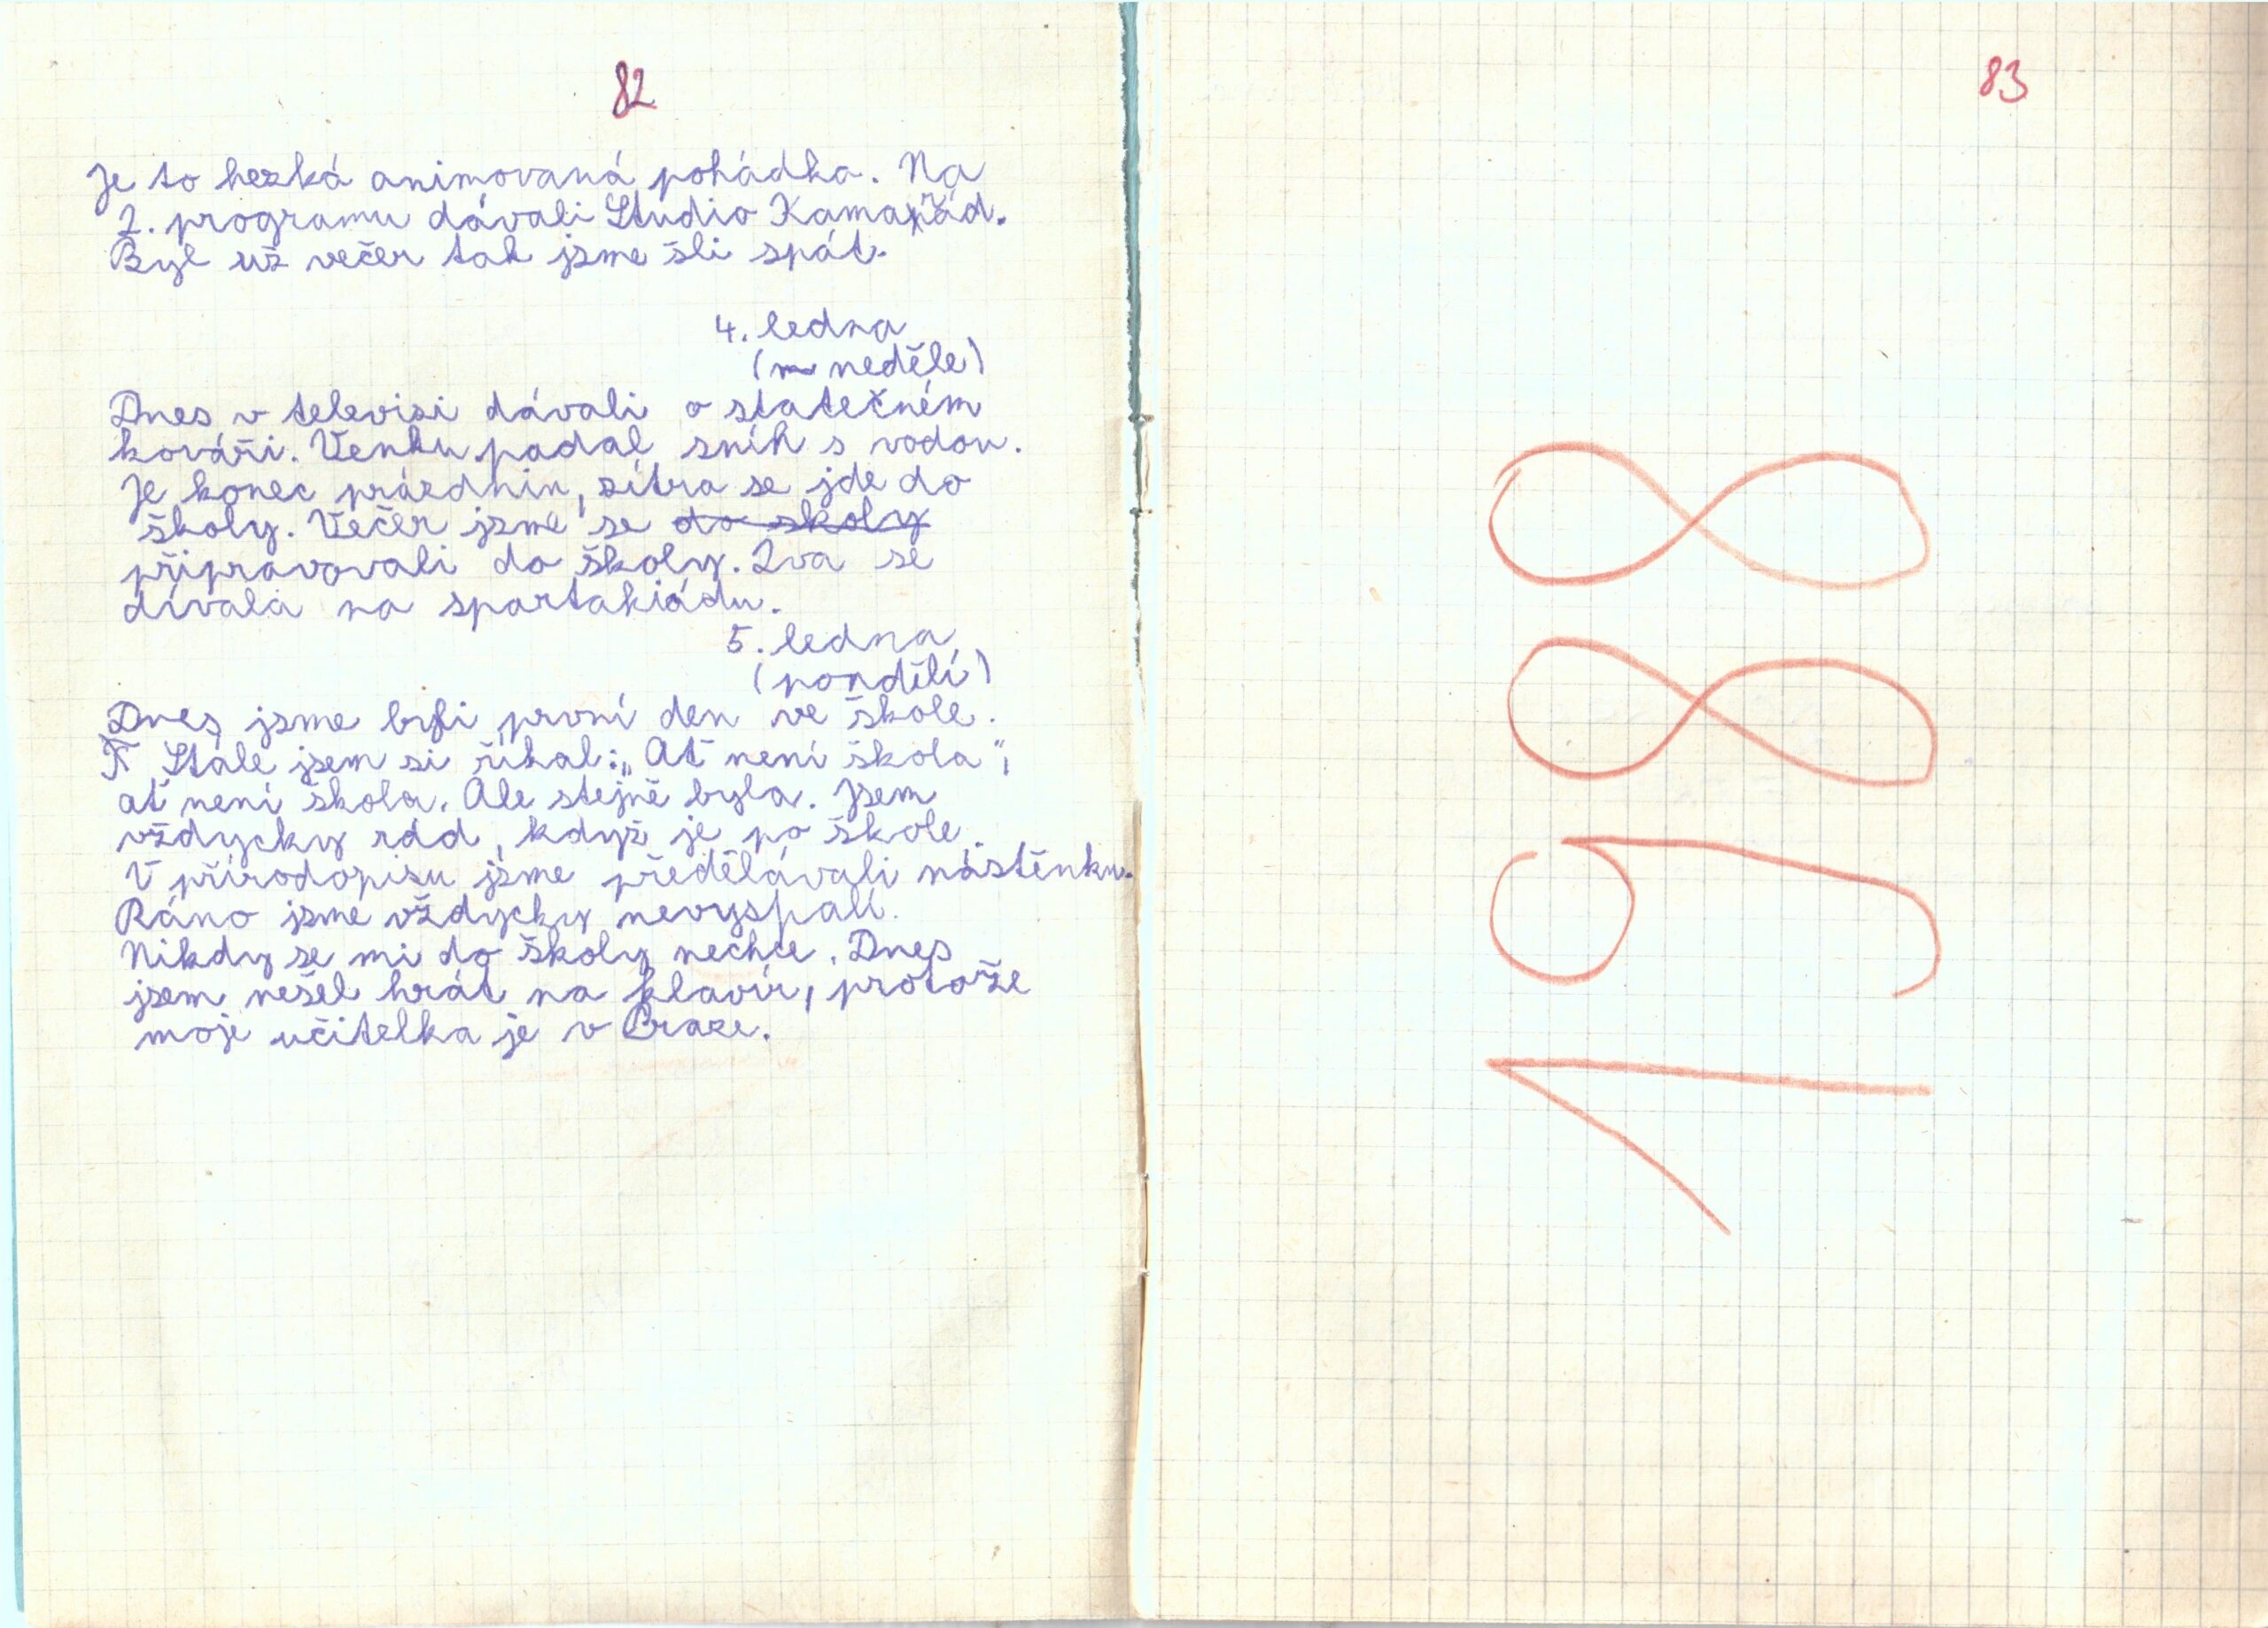 82
Je to hezká animovaná pohádka. Na
2. programu dávali Studio Kamarád.
Byl už večer tak jsme šli spát.
4. ledna
(neděle)
Dnes v televisi dávali o statečném
kováři. Venku padal sníh s vodou.
Je konec prázdnin, zítra se jde do
školy. Večer jsme se do skoly
připravovali do školy. Iva se
dívala na spartakiádu.
5. ledna
(pondělí)
Dnes jsme byli první den ve škole.
Stále jsem si říkal: „Ať není škola",
ať není škola. Ale stejně byla. Jsem
vždycky rád, když je po škole.
V přírodopisu jsme předělávali nástěnku.
Ráno jsme vždycky nevyspalí.
Nikdy se mi do školy nechce. Dnes
jsem nešel hrát na klavír, protože
moje učitelka je v Praze.
83
1988